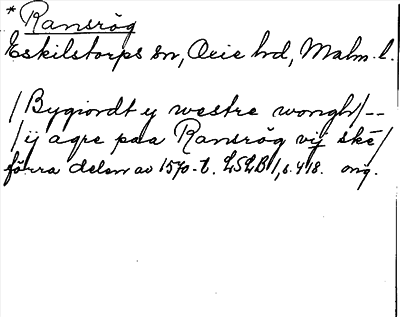 * Ransrög
Eskilstorps sn, Oxie hd, Malm. l.
/Bygiordt y westre wongh/--
/ij agre paa Ransrög vij ske/
förra delen av 1570-t. LSLB 1, s. 418. orig.